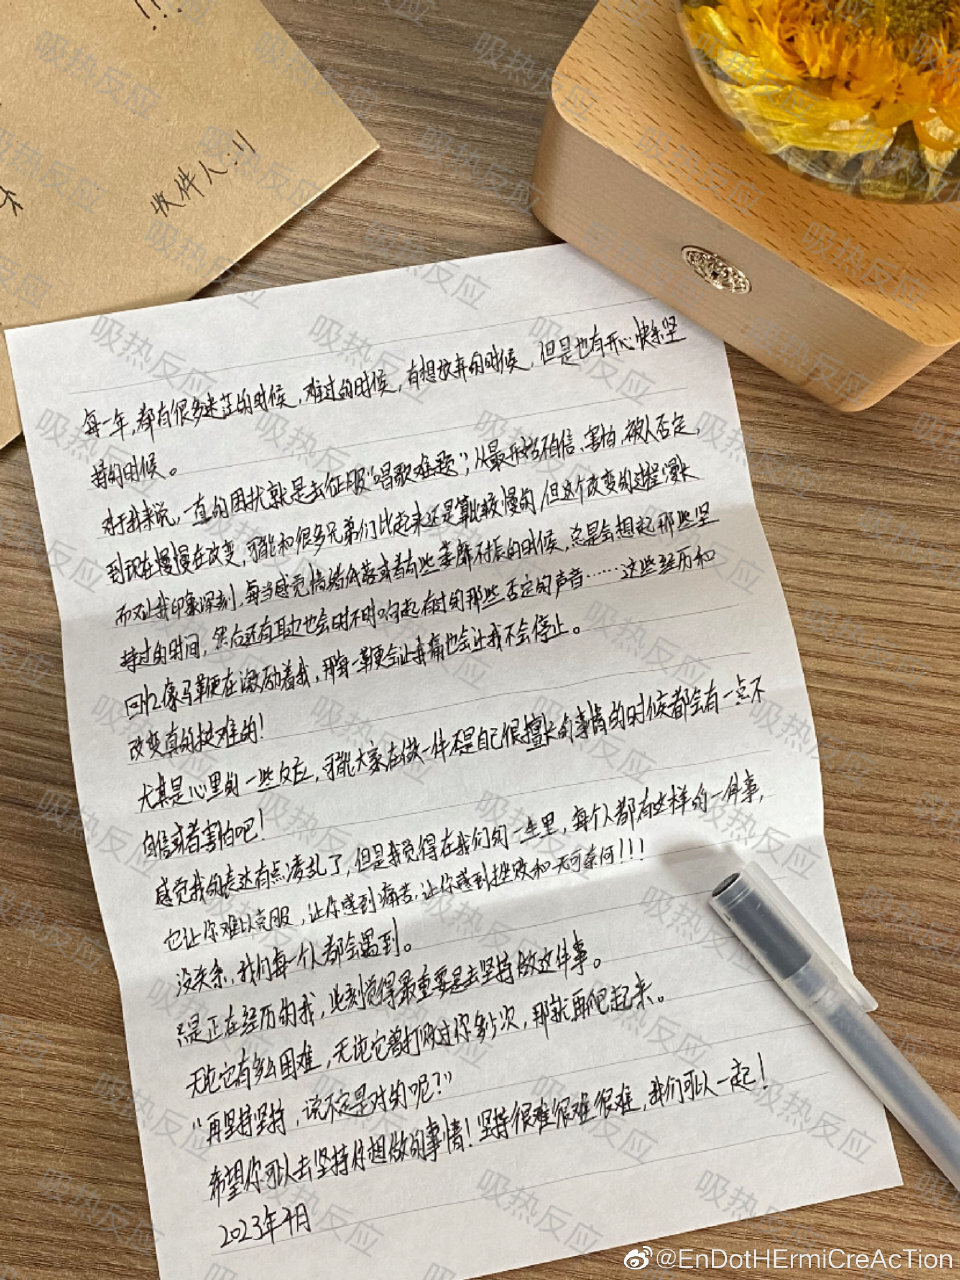 !!!
收件人:
每一年,都有很多迷茫的时候,难过的时候,有想放弃的时候,但是也有开心快乐坚
持的时候。
对于我来说,一直的困扰就是去征服“唱歌难题”,从最开始不自信、害怕、被人否定,
到现在慢慢在改变,可能和很多兄弟们比起来还是算比较慢的,但这个改变的过程漫长
而又让我印象深刻,每当感觉情绪低落或者有些萎靡不振的时候,总是会想起那些坚
持过的时间,然后还有耳边也会时不时响起有时的那些否定的声音……这些经历和
回忆像马鞭在激励着我,那每一鞭会让我痛也会让我不会停止。
改变真的挺难的!
尤其是心里的一些反应,可能大家在做一件不是自己很擅长的事情的时候都会有一点不
自信或者害怕吧!
感觉我的表达有点凌乱了,但是我觉得在我们的一生里,每个人都有这样的一件事,
它让你难以克服,让你感到痛苦,让你感到挫败和无可奈何!!!
没关系,我们每一个人都会遇到。
只是正在经历的我,此刻觉得最重要是去坚持做这件事。
无论它有多么困难,无论它曾打败过你多少次,那就再爬起来。
“再坚持坚持,说不定是对的呢?”
希望你可以去坚持你想做的事情!坚持很难很难很难,我们可以一起!
2023年4月
吸热反应
@EnDotHErmiCreAcTion